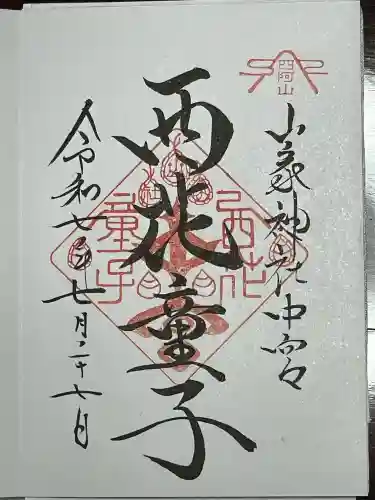 四阿山
山家神社中宮
西花童子
西花
童子
令和七年七月二十七日